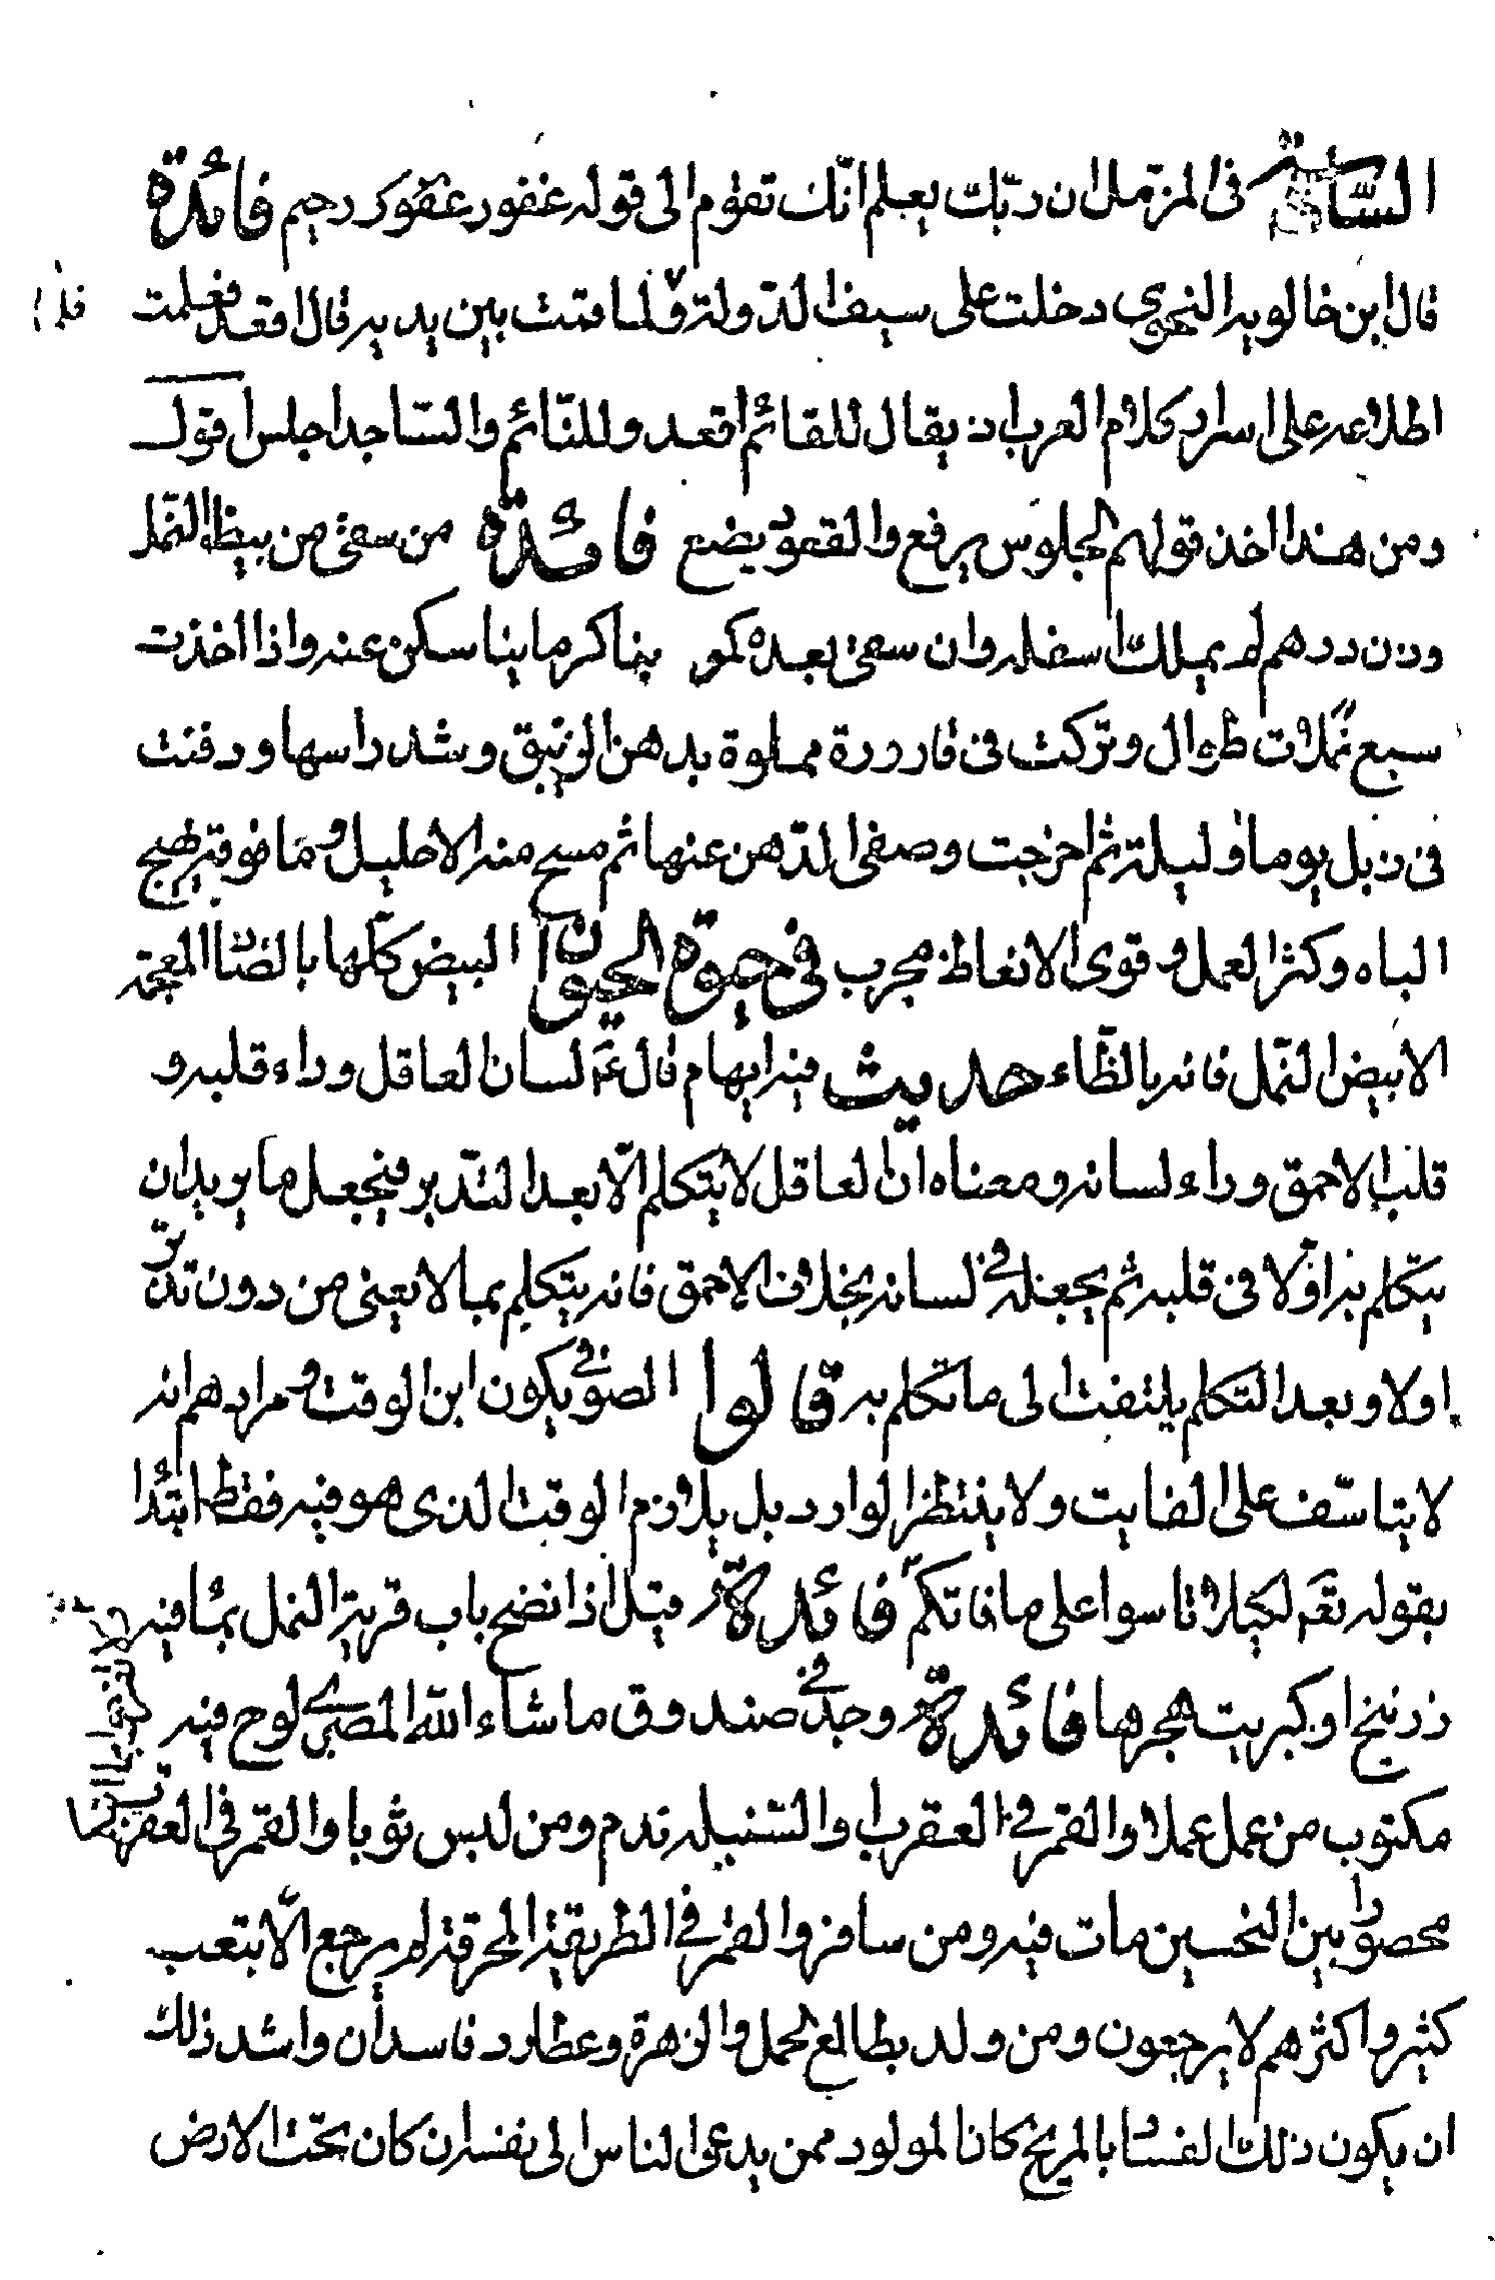 السابعة فى المزمل ان ربك يعلم انك تقوم الى قوله غفور رحيم فائدة
قال ابن خالويه النحوى دخلت على سيف الدولة فلما قمت بين يديه قال اقعد فعلمت
اطلاعه على اسرار كلام العرب اذ يقال للقائم اقعد وللنائم والساجد اجلس اقول
ومن هذا اخذ قولهم الجلوس يرفع والقعود يضع فائدة من سقى من بيظ النمل
وزن درهم لم يملك اسفله وان سقى بعده كمونا كرمانيا سكن عنه واذا اخذت
سبع نملات طوال وتركت فى قارورة مملوة بدهن الزنبق وشد راسها ودفنت
فى زبل يوما وليلة ثم اخرجت وصفى الدهن عنها ثم مسح منه الاحليل وما فوقه يهيج
الباه وكثر العمل وقوى الانعاظ مجرب فى حيوة الحيوان البيض كلها بالضاد المعجمة
الا بيض النمل فانه بالظاء حديث فيه ايهام قال ع م لسان العاقل وراء قلبه و
قلب الاحمق وراء لسانه ومعناه ان العاقل لا يتكلم الا بعد التدبر فيجعل ما يريد ان
يتكلم به اولا فى قلبه ثم يجعله فى لسانه بخلاف الاحمق فانه يتكلم بما لا يعنى من دون تدبر
اولا وبعد التكلم يلتفت الى ما تكلم به قالوا الصوفى يكون ابن الوقت ومرادهم انه
لا يتاسف على الفايت ولا ينتظر الوارد بل يلازم الوقت الذى هو فيه فقط ابتداء
بقوله تعم لكيلا تاسوا على ما فاتكم فائدة قيل اذا نضح باب قرية النمل بماء فيه
زرنيخ او كبريت هجرها فائدة وجد فى صندوق ما شاء الله المصرى لوح فيه
مكتوب من عمل عملا والقمر فى العقرب والسنبله ندم ومن لبس ثوبا والقمر فى العقرب
محصورا بين النحسين مات فيه ومن سافر والقمر فى الطريقة المحرقة لم يرجع الا بتعب
كثير واكثرهم لا يرجعون ومن ولد بطالع الحمل والزهرة وعطارد فاسدان واشد ذلك
ان يكون ذلك الفساد بالمريخ كان المولود ممن يدعى الناس الى نفسه ان كان تحت الارض